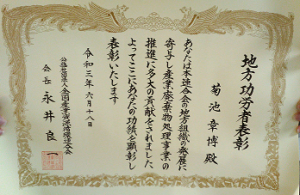 地方功労者表彰
菊池章博殿
あなたは本連合会の地方組織の発展に
寄与し産業廃棄物処理事業の
推進に多大の貢献をされました
よってここにあなたの功績を顕彰し
表彰いたします
令和三年六月十八日
公益社団法人全国産業資源循環連合会
会長 永井良一